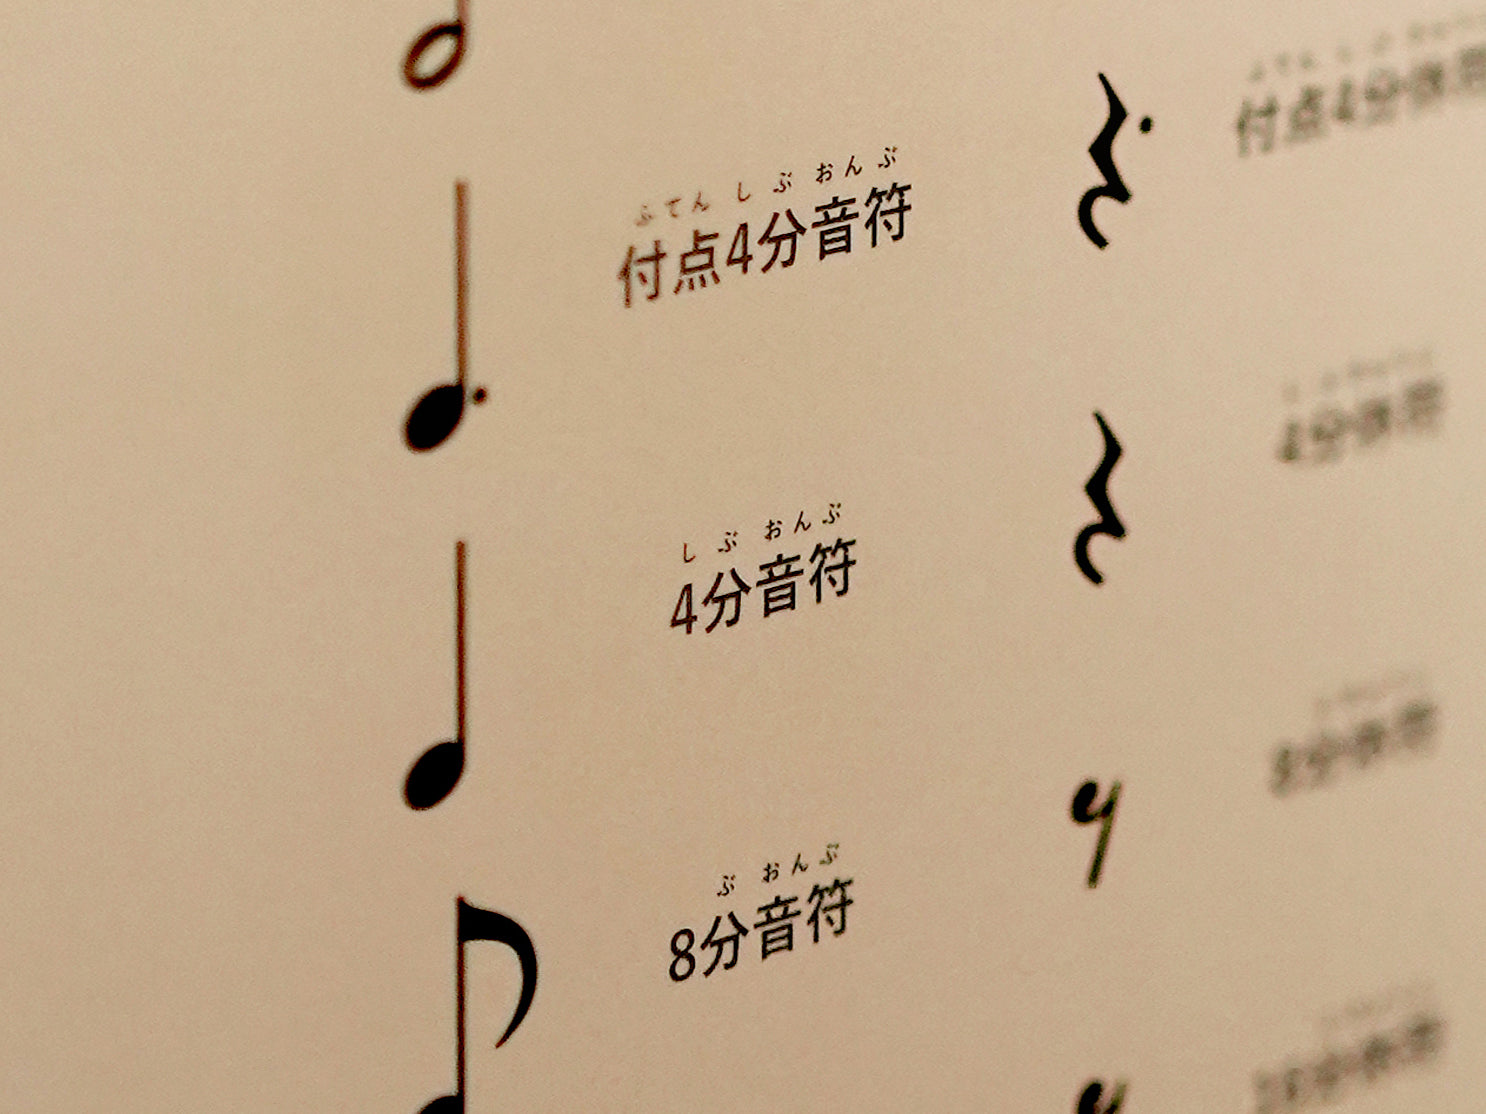 ふてん し ぶ おんぷ
付点4分音符
付点4分休符
し ぶ おんぷ
4分音符
4分休符
ぶ おんぷ
8分音符
8分休符